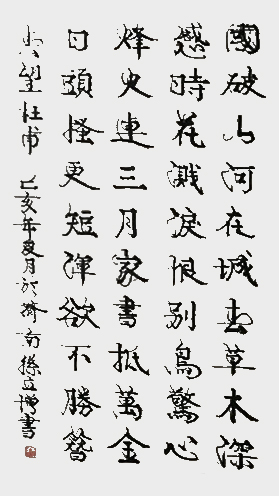 國破山河在城春草木深
感時花濺淚恨別鳥驚心
烽火連三月家書抵萬金
白頭搔更短渾欲不勝簪
春望杜甫 己亥年夏月於濟南孫立增書